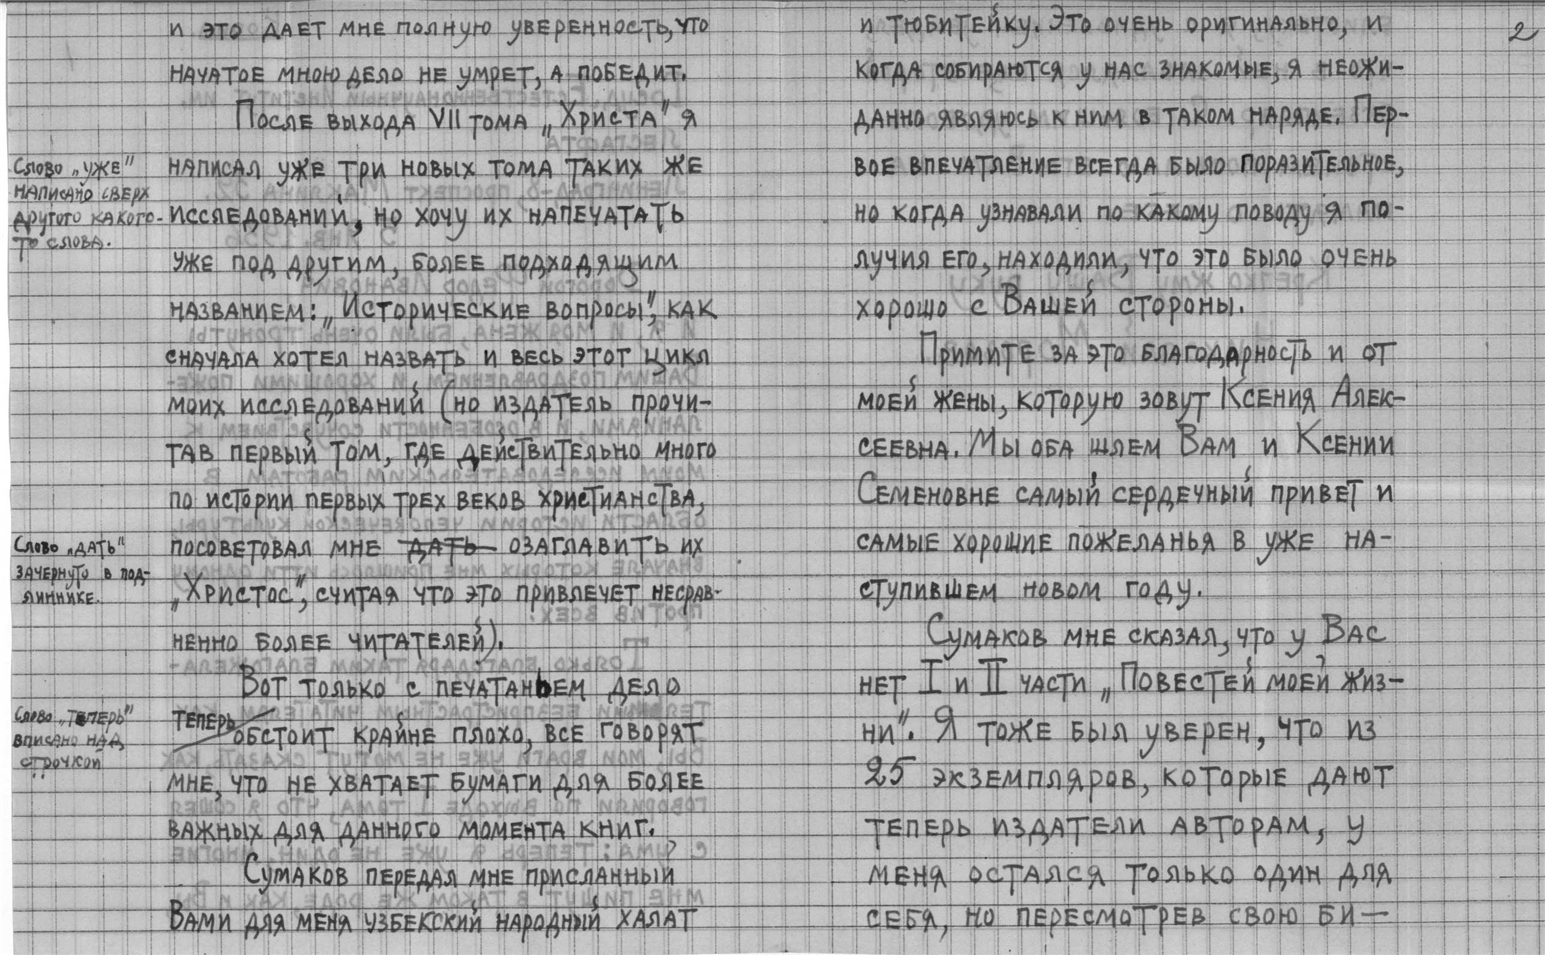 и это дает мне полную уверенность, что
начатое мною дело не умрет, а победит.
После выхода VII тома „Христа" я
написал уже три новых тома таких же
исследований, но хочу их напечатать
уже под другим, более подходящим
названием: „Исторические вопросы", как
сначала хотел назвать и весь этот цикл
моих исследований (но издатель прочи-
тав первый том, где действительно много
по истории первых трех веков христианства,
посоветовал мне дать озаглавить их
„Христос", считая что это привлечет несрав-
ненно более читателей).
Вот только с печатаньем дело
теперь обстоит крайне плохо, все говорят
мне, что не хватает бумаги для более
важных для данного момента книг.
Сумаков передал мне присланный
Вами для меня узбекский народный халат
Слово „уже"
написано сверх
другого какого-
то слова.
Слово „дать"
зачернуто в под-
линнике.
Слово „теперь"
вписано над
строчкой
2
и тюбитейку. Это очень оригинально, и
когда собираются у нас знакомые, я неожи-
данно являюсь к ним в таком наряде. Пер-
вое впечатление всегда было поразительное,
но когда узнавали по какому поводу я по-
лучил его, находили, что это было очень
хорошо с Вашей стороны.
Примите за это благодарность и от
моей жены, которую зовут Ксения Алек-
сеевна. Мы оба шлем Вам и Ксении
Семеновне самый сердечный привет и
самые хорошие пожеланья в уже на-
ступившем новом году.
Сумаков мне сказал, что у Вас
нет I и II части „Повестей моей жиз-
ни". Я тоже был уверен, что из
25 экземпляров, которые дают
теперь издатели авторам, у
меня остался только один для
себя, но пересмотрев свою би-